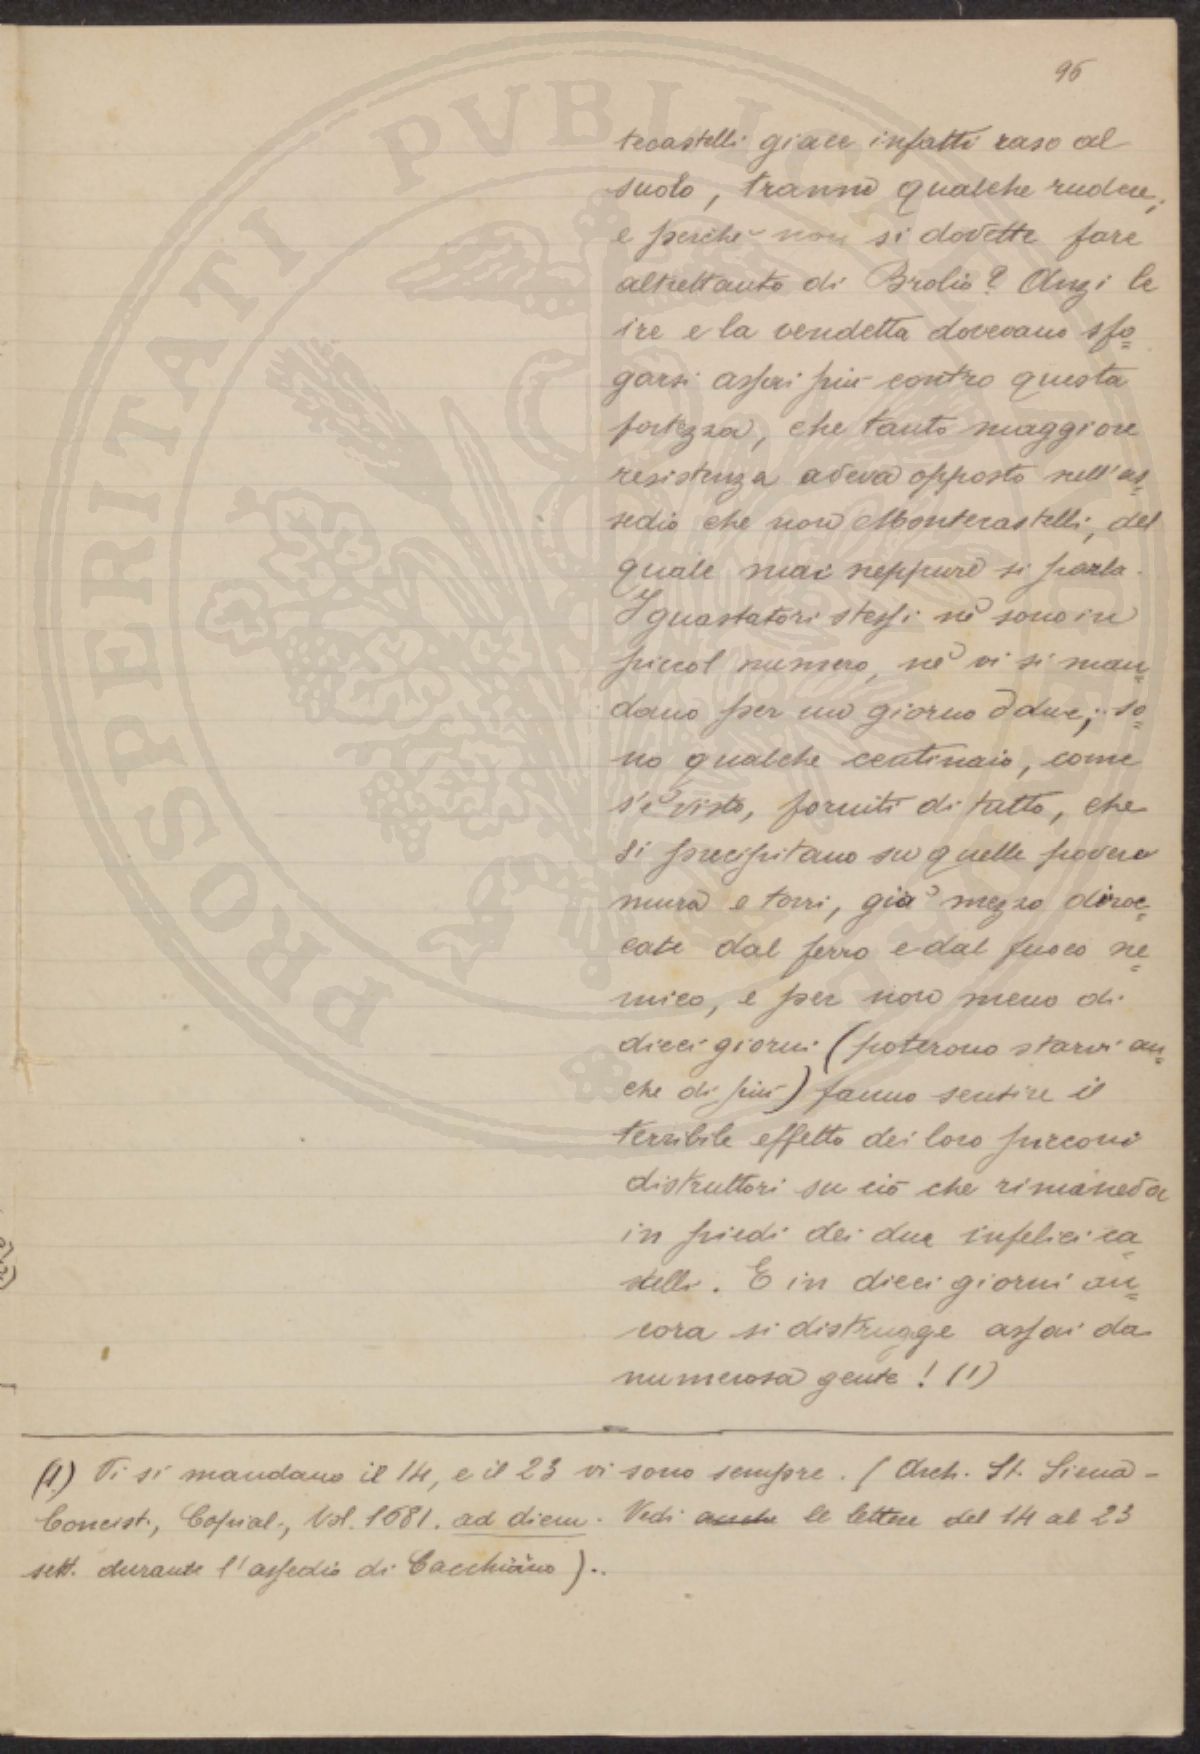 96
tecastelli giace infatti raso al
suolo, tranne qualche rudere;
e perchè non si dovette fare
altrettanto di Brolio? Anzi le
ire e la vendetta dovevano sfo=
garsi assai più contro questa
fortezza, che tanto maggiore
resistenza aveva opposto nell'as=
sedio che non Montecastelli, del
quale mai neppure si parla.
I guastatori stessi nè sono in
piccol numero, nè vi si man=
dano per uno giorno o due; so=
no qualche centinaio, come
s'è visto, forniti di tutto, che
si precipitano su quelle povere
mura e torri, già mezzo diroc=
cate dal ferro e dal fuoco ne=
mico, e per non meno di
dieci giorni (poterono starvi an=
che di più) fanno sentire il
terribile effetto dei loro picconi
distruttori su ciò che rimaneva
in piedi dei due infelici ca=
stelli. E in dieci giorni an=
cora si distrugge assai da
numerosa gente! (1)
(1) Vi si mandano il 14, e il 23 vi sono sempre. (Arch. St. Siena -
Concist., Copial., Vol. 1681. ad diem. Vedi anche le lettere del 14 al 23
sett. durante l'assedio di Cacchiano)..
PVBLICAE
PROSPERITATI